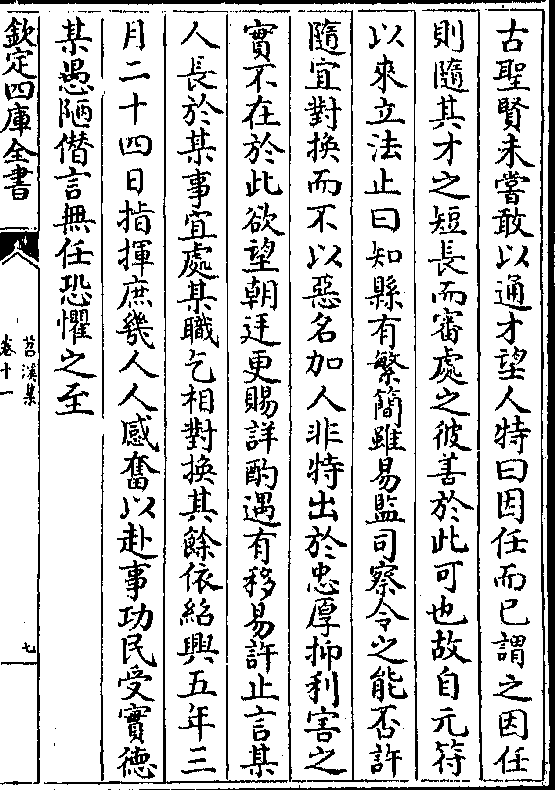 古聖賢未嘗敢以通才望人特曰因任而已謂之因任
則隨其才之短長而審處之彼善於此可也故自元符
以來立法止曰知縣有繁簡雖易監司察令之能否許
隨宜對換而不以惡名加人非特出於忠厚抑利害之
實不在於此欲望朝廷更賜詳酌遇有移易許止言某
人長於某事宜處某職乞相對換其餘依紹興五年三
月二十四日指揮庶幾人人感奮以赴事功民受實德
某愚陋僭言無任恐懼之至
欽定四庫全書
苕溪集
卷十一
七